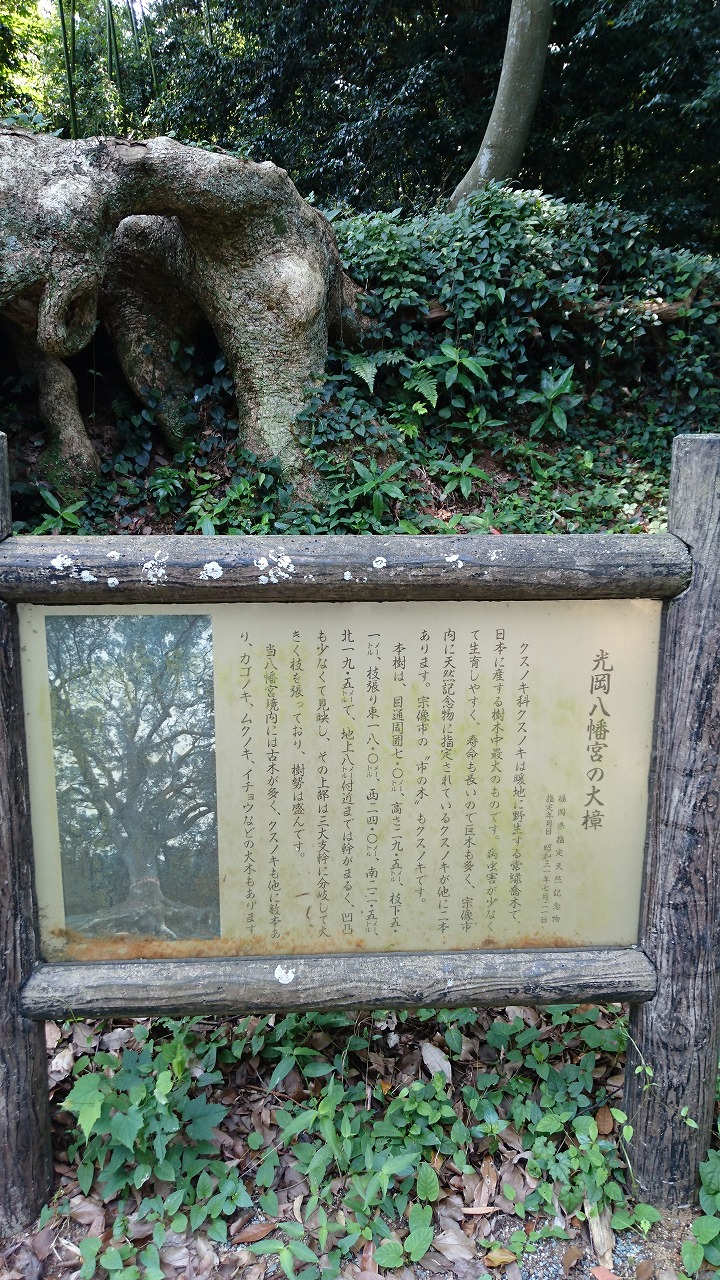 光岡八幡宮の大樟
福岡県指定天然記念物
指定年月日 昭和三一年七月二一日
クスノキ科クスノキは暖地に野生する常緑喬木で、
日本に産する樹木中最大のものです。病虫害が少なく
て生育しやすく、寿命も長いので巨木も多く、宗像市
内に天然記念物に指定されているクスノキが他に二本
あります。宗像市の〝市の木〟もクスノキです。
本樹は、目通周囲七・〇㍍、高さ二九・五㍍、枝下五・
一㍍、枝張り東一八・〇㍍、西二四・〇㍍、南二二・五㍍、
北一九・五㍍で、地上八㍍付近までは幹がまるく、凹凸
も少なくて見映し、その上部は三大支幹に分岐して大
きく枝を張っており、樹勢は盛んです。
当八幡宮境内には古木が多く、クスノキも他に数本あ
り、カゴノキ、ムクノキ、イチョウなどの大木もあります